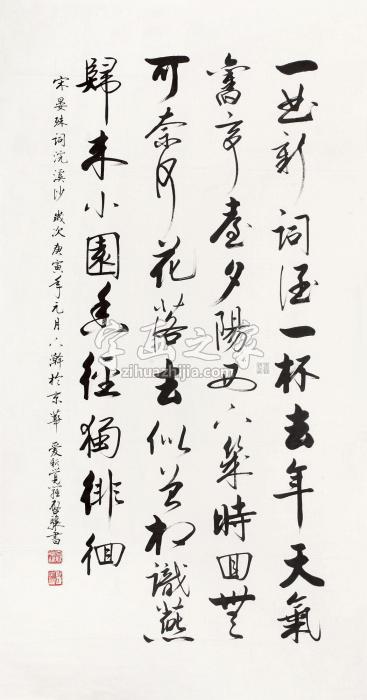 一曲新詞酒一杯去年天氣
舊亭臺夕陽西下幾時回無
可奈何花落去似曾相識燕
歸來小園香徑獨徘徊
宋晏殊詞浣溪沙 歲次庚寅年元月 於京華 愛新覺羅 書
字画之家
zihuazhijia.com